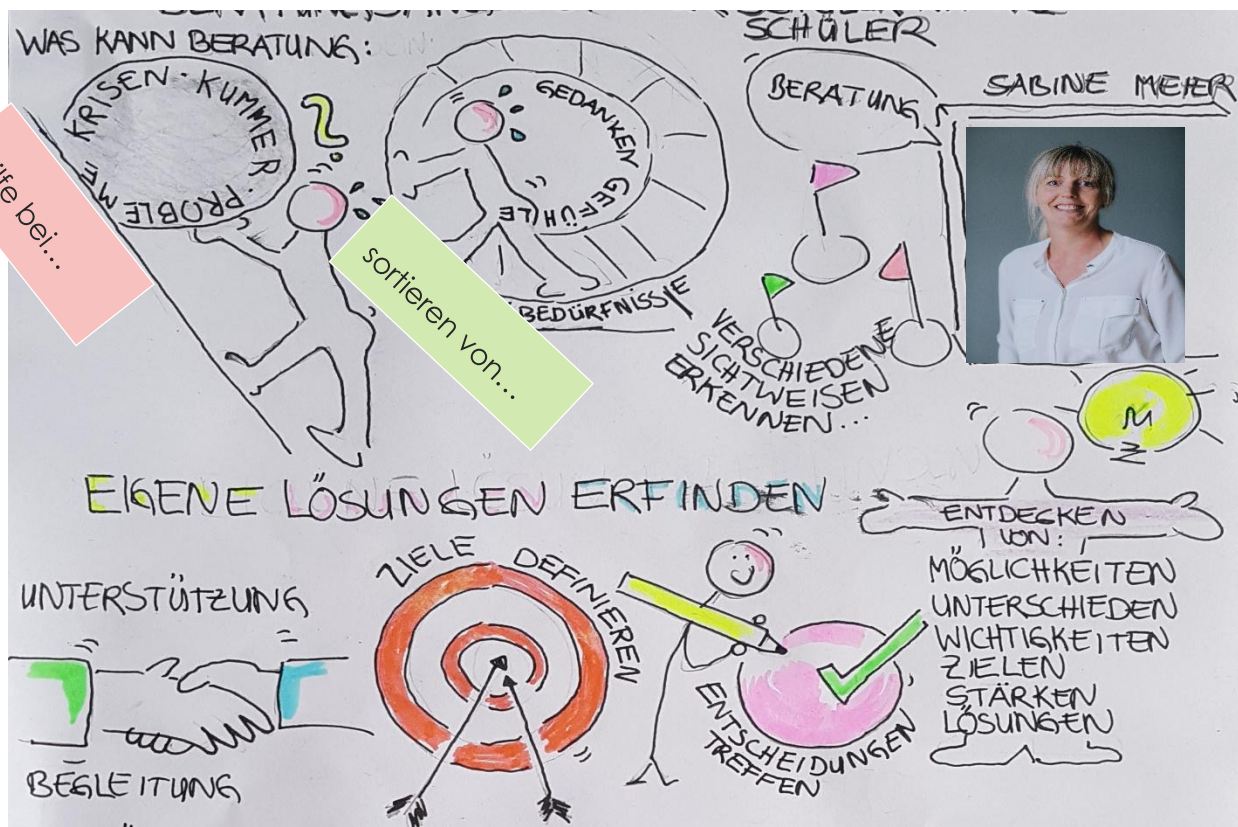 SCHÜLER
WAS KANN BERATUNG:
KRISEN · KUMMER · PROBLEME
?
bei...
GEDANKEN GEFÜHLE
BEDÜRFNISSE
sortieren von...
BERATUNG
SABINE MEHER
VERSCHIEDENE
SICHTWEISEN
ERKENNEN...
EIGENE LÖSUNGEN ERFINDEN
ENTDECKEN
VON:
MÖGLICHKEITEN
UNTERSCHIEDEN
WICHTIGKEITEN
ZIELEN
STÄRKEN
LÖSUNGEN
UNTERSTÜTZUNG
BEGLEITUNG
ZIELE DEFINIEREN
ENTSCHEIDUNGEN
TREFFEN